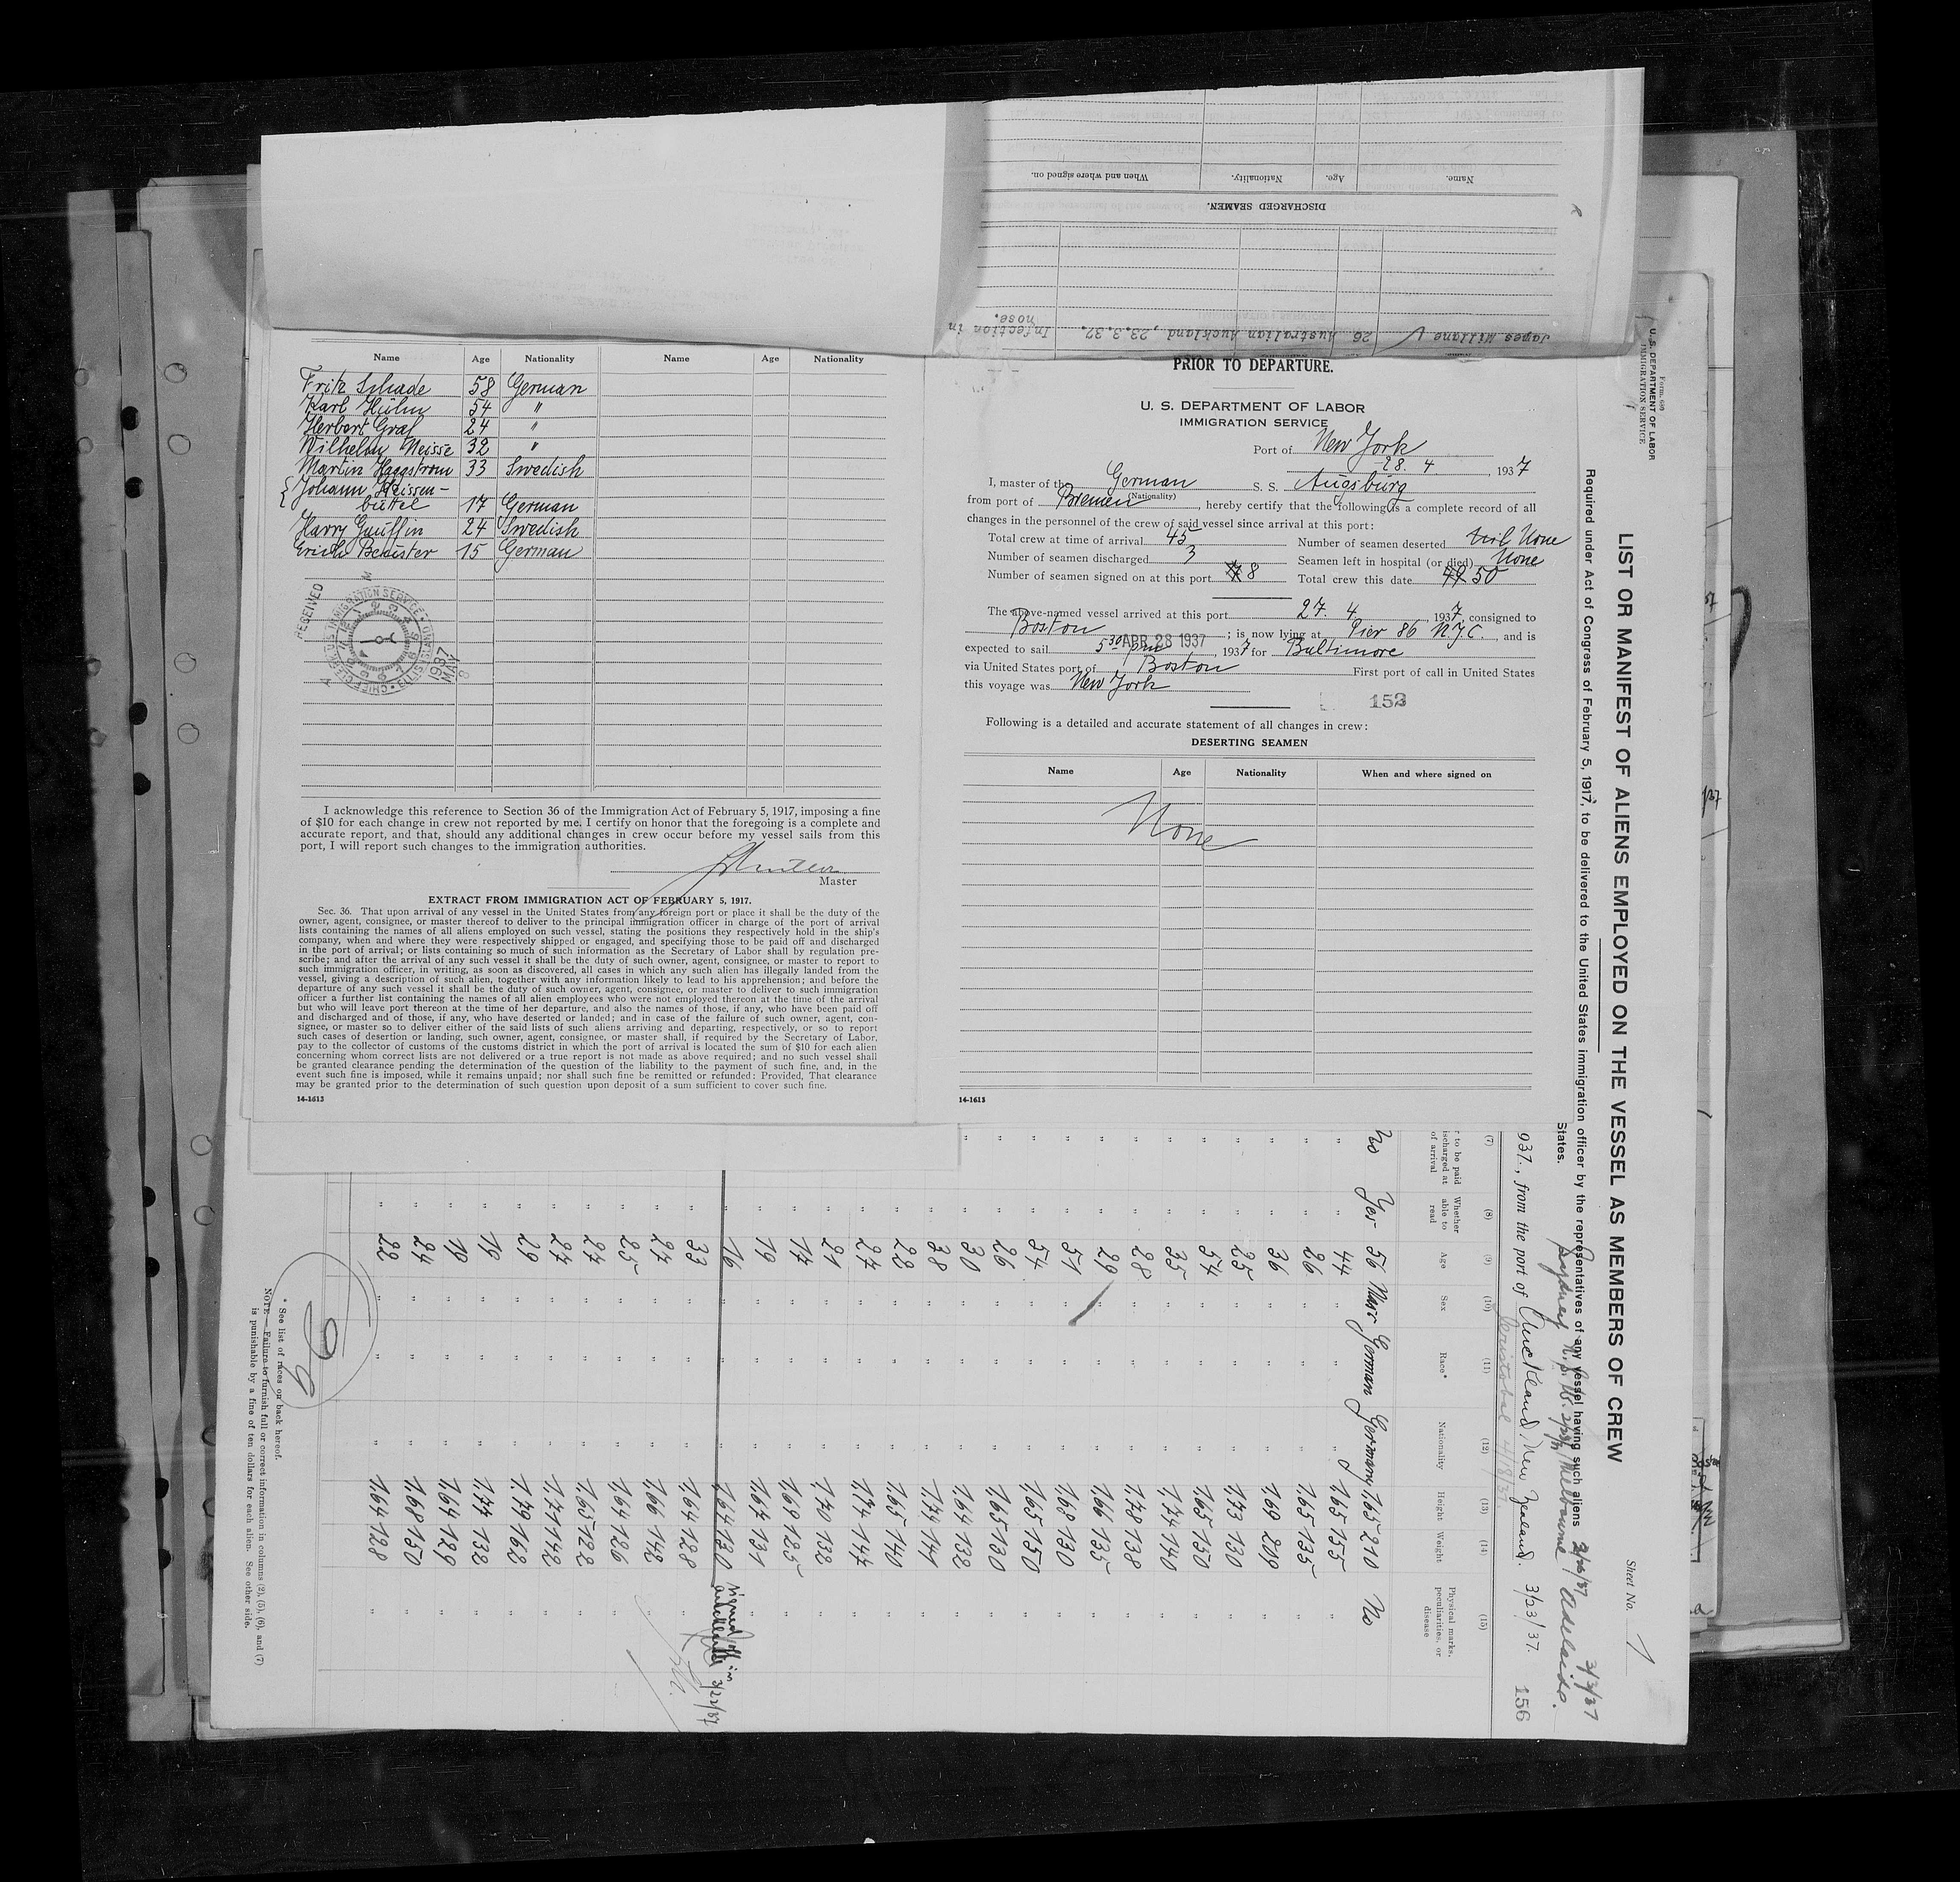 Name Age Nationality Name Age Nationality
Fritz Schade 58 German
Karl Hühn 54 "
Herbert Graf 24 "
Wilhelm Meisse 32 "
Martin Haggstrom 33 Swedish
Johann Heissen-
büttel 17 German
Harry 24 Swedish
Erich 15 German
RECEIVED
IMMIGRATION SERVICE
1937
I acknowledge this reference to Section 36 of the Immigration Act of February 5, 1917, imposing a fine
of $10 for each change in crew not reported by me. I certify on honor that the foregoing is a complete and
accurate report, and that, should any additional changes in crew occur before my vessel sails from this
port, I will report such changes to the immigration authorities.
Master
EXTRACT FROM IMMIGRATION ACT OF FEBRUARY 5, 1917.
Sec. 36. That upon arrival of any vessel in the United States from any foreign port or place it shall be the duty of the
owner, agent, consignee, or master thereof to deliver to the principal immigration officer in charge of the port of arrival
lists containing the names of all aliens employed on such vessel, stating the positions they respectively hold in the ship's
company, when and where they were respectively shipped or engaged, and specifying those to be paid off and discharged
in the port of arrival; or lists containing so much of such information as the Secretary of Labor shall by regulation pre-
scribe; and after the arrival of any such vessel it shall be the duty of such owner, agent, consignee, or master to report to
such immigration officer, in writing, as soon as discovered, all cases in which any such alien has illegally landed from the
vessel, giving a description of such alien, together with any information likely to lead to his apprehension; and before the
departure of any such vessel it shall be the duty of such owner, agent, consignee, or master to deliver to such immigration
officer a further list containing the names of all alien employees who were not employed thereon at the time of the arrival
but who will leave port thereon at the time of her departure, and also the names of those, if any, who have been paid off
and discharged and of those, if any, who have deserted or landed; and in case of the failure of such owner, agent, con-
signee, or master so to deliver either of the said lists of such aliens arriving and departing, respectively, or so to report
such cases of desertion or landing, such owner, agent, consignee, or master shall, if required by the Secretary of Labor,
pay to the collector of customs of the customs district in which the port of arrival is located the sum of $10 for each alien
concerning whom correct lists are not delivered or a true report is not made as above required; and no such vessel shall
be granted clearance pending the determination of the question of the liability to the payment of such fine, and, in the
event such fine is imposed, while it remains unpaid; nor shall such fine be remitted or refunded: Provided, That clearance
may be granted prior to the determination of such question upon deposit of a sum sufficient to cover such fine.
14-1613
Name. Age. Nationality. When and where signed on.
DISCHARGED SEAMEN.
James Millane 26 Australian Auckland, 23.3.37. Infection in
nose.
PRIOR TO DEPARTURE.
U. S. DEPARTMENT OF LABOR
IMMIGRATION SERVICE
Port of New York
28. 4, 1937
I, master of the German S. S. Augsburg
(Nationality)
from port of Bremen, hereby certify that the following is a complete record of all
changes in the personnel of the crew of said vessel since arrival at this port:
Total crew at time of arrival 45 Number of seamen deserted None
Number of seamen discharged 3 Seamen left in hospital (or died) None
Number of seamen signed on at this port 8 Total crew this date 49 50
The above-named vessel arrived at this port 27. 4., 1937, consigned to
Boston; is now lying at Pier 86 N.Y.C., and is
expected to sail 5 30 pm APR 28 1937, 1937 for Baltimore
via United States port of Boston First port of call in United States
this voyage was New York
152
Following is a detailed and accurate statement of all changes in crew:
DESERTING SEAMEN
Name Age Nationality When and where signed on
None
14-1613
Form 689
U. S. DEPARTMENT OF LABOR
IMMIGRATION SERVICE
Sheet No. 1
LIST OR MANIFEST OF ALIENS EMPLOYED ON THE VESSEL AS MEMBERS OF CREW
Required under Act of Congress of February 5, 1917, to be delivered to the United States immigration officer by the representatives of any vessel having such aliens
States. Sydney N.S.W. Melbourne 2/26/37 Adelaide. 3/3/37
937., from the port of Auckland New Zealand. 3/23/37. 156
Cristobal 4/18/37.
(7) (8) (9) (10) (11) (12) (13) (14) (15)
to be paid
discharged at
of arrival
Whether
able to
read
Age Sex Race* Nationality Height Weight
Physical marks,
peculiarities, or
disease
No Yes 56 Mas German Germany 1.65 210 No
" " 44 " " " 1.65 155 "
" " 26 " " " 1.65 135 "
" " 36 " " " 1.69 209 "
" " 25 " " " 1.73 130 "
" " 54 " " " 1.65 150 "
" " 35 " " " 1.74 140 "
" " 28 " " " 1.78 138 "
" " 29 " " " 1.66 135 "
" " 51 " " " 1.68 130 "
" " 54 " " " 1.65 150 "
" " 26 " " " 1.65 130 "
" " 30 " " " 1.64 132 "
" 38 " " " 1.74 141 "
" 22 " " " 1.65 140 "
" 24 " " " 1.74 144 "
" 21 " " " 1.70 132 "
" 17 " " " 1.68 125 "
" 19 " " " 1.67 131 "
" 16 " " " 1.64 130 signed off in Auckland 3/22/37
" 33 " " " 1.64 128 "
" 24 " " " 1.66 142 "
" 25 " " " 1.64 126 "
" 24 " " " 1.65 122 "
" 24 " " " 1.71 142 "
" 29 " " " 1.79 162 "
" 19 " " " 1.74 132 "
" 19 " " " 1.64 129 "
" 24 " " " 1.68 150 "
" 22 " " " 1.64 128 "
* See list of races on back hereof.
NOTE.—Failure to furnish full or correct information in columns (2), (5), (6), and (7)
is punishable by a fine of ten dollars for each alien. See other side.